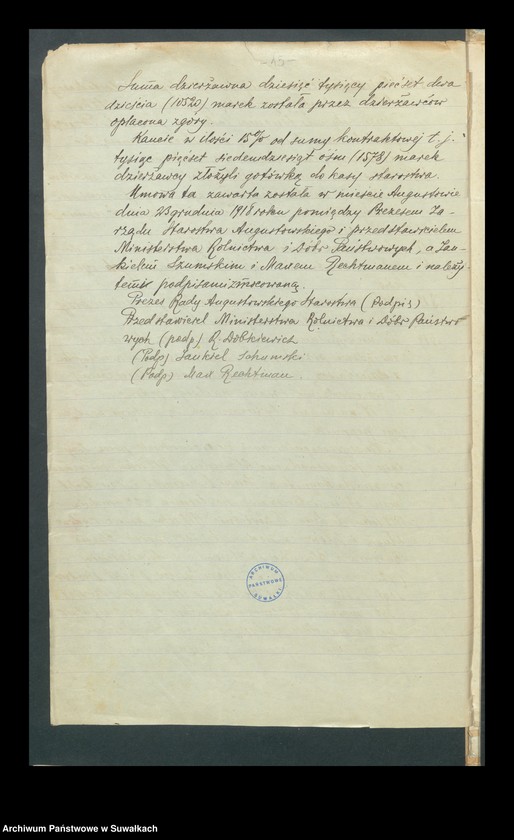 -45-
Suma dzierżawna dziesięć tysięcy pięćset dwa
dzieścia (10520) marek została przez dzierżawców
opłacona zgóry.
Kaucie w ilości 15% od sumy kontraktowej t. j.
tysiąc pięćset siedemdziesiąt ośm (1578) marek
dzierżawcy złożyli gotówką do kasy starostwa.
Umowa ta zawarta została w mieście Augustowie
dnia 23 grudnia 1918 roku pomiędzy Prezesem Za-
rządu Starostwa Augustowskiego i przedstawicielem
Ministerstwa Rolnictwa i Dóbr Państwowych, a Jan-
kielem Szumskim i Maxem Rechtmanem i należy
temiż podpisami
Prezes Rady Augustowskiego Starostwa (Podpis)
Przedstawiciel Ministerstwa Rolnictwa i Dóbr Państwo
wych (podp) R. Dobkiewicz
(Podp) Jankiel Schumski
(Podp) Max Rechtman.
ARCHIWUM
PAŃSTWOWE
SUWAŁKI
Archiwum Państwowe w Suwałkach